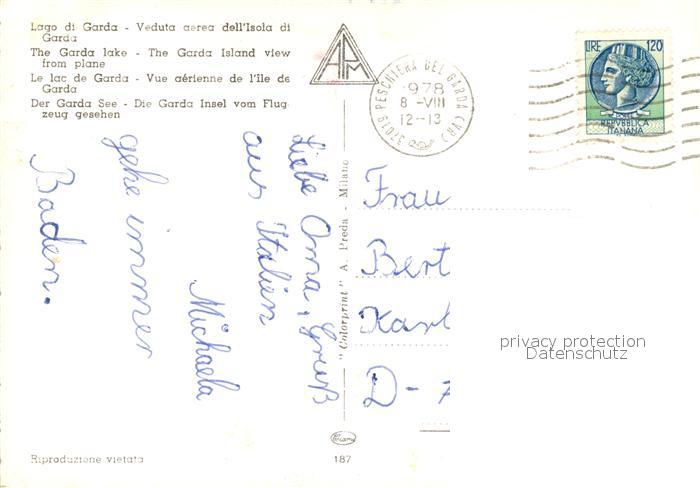 Lago di Garda - Veduta aerea dell'Isola di
Garda
The Garda lake - The Garda Island view
from plane
Le lac de Garda - Vue aérienne de l'île de
Garda
Der Garda See - Die Garda Insel vom Flug-
zeug gesehen
APM
37019 PESCHIERA DEL GARDA (VR)
1978
8 -VIII
12-13
LIRE 120
REPVBBLICA
ITALIANA
Liebe Oma, Gruß
aus Italien
Michaela
gehe immer
Baden.
"Colorprint" A. Preda - Milano
Frau
Bert
Karl
D-
privacy protection
Datenschutz
Riproduzione vietata
187